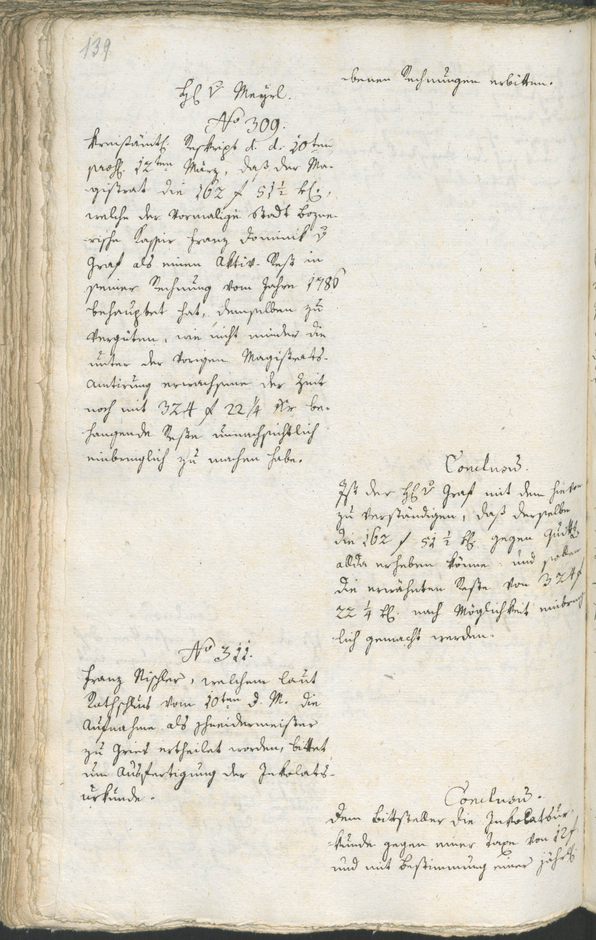 139.
benen Rechnungen erbitten.
H. v. Mayrl.
No 309.
Kreisämtl. Reskript d. d. 10ten
praes. 12ten März, daß der Ma-
gistrat die 162 f 51½ kr.,
welche der vormalige Stadt bozne-
rische Kassier Franz Dominik v
Graf als einen Aktiv-Rest in
seiner Rechnung vom Jahre 1786
behauptet hat, demselben zu
vergüten, wie nicht minder die
unter der vorigen Magistrats-
Amtirung erwachsene der Zeit
noch mit 324 f 22¼ kr be-
hangende Reste unnachsichtlich
einbringlich zu machen habe.
Conclusum.
Ist der H. v Graf mit dem hievon
zu verständigen, daß derselbe
die 162 f 51½ kr. gegen Quitt.
allda erheben könne und sollen
die erwähnten Reste von 324 f
22¼ kr. nach Möglichkeit einbring-
lich gemacht werden.
No 311.
Franz Rischler, welchem laut
Rathschluß vom 10ten d. M. die
Aufnahme als Schneidermeister
zu Gries ertheilet worden, bittet
um Ausfertigung der Inkolats-
urkunde.
Conclusum.
Dem Bittsteller die Inkolatsur-
kunde gegen einer Taxe von 12 f
und mit Bestimmung einer jährl.